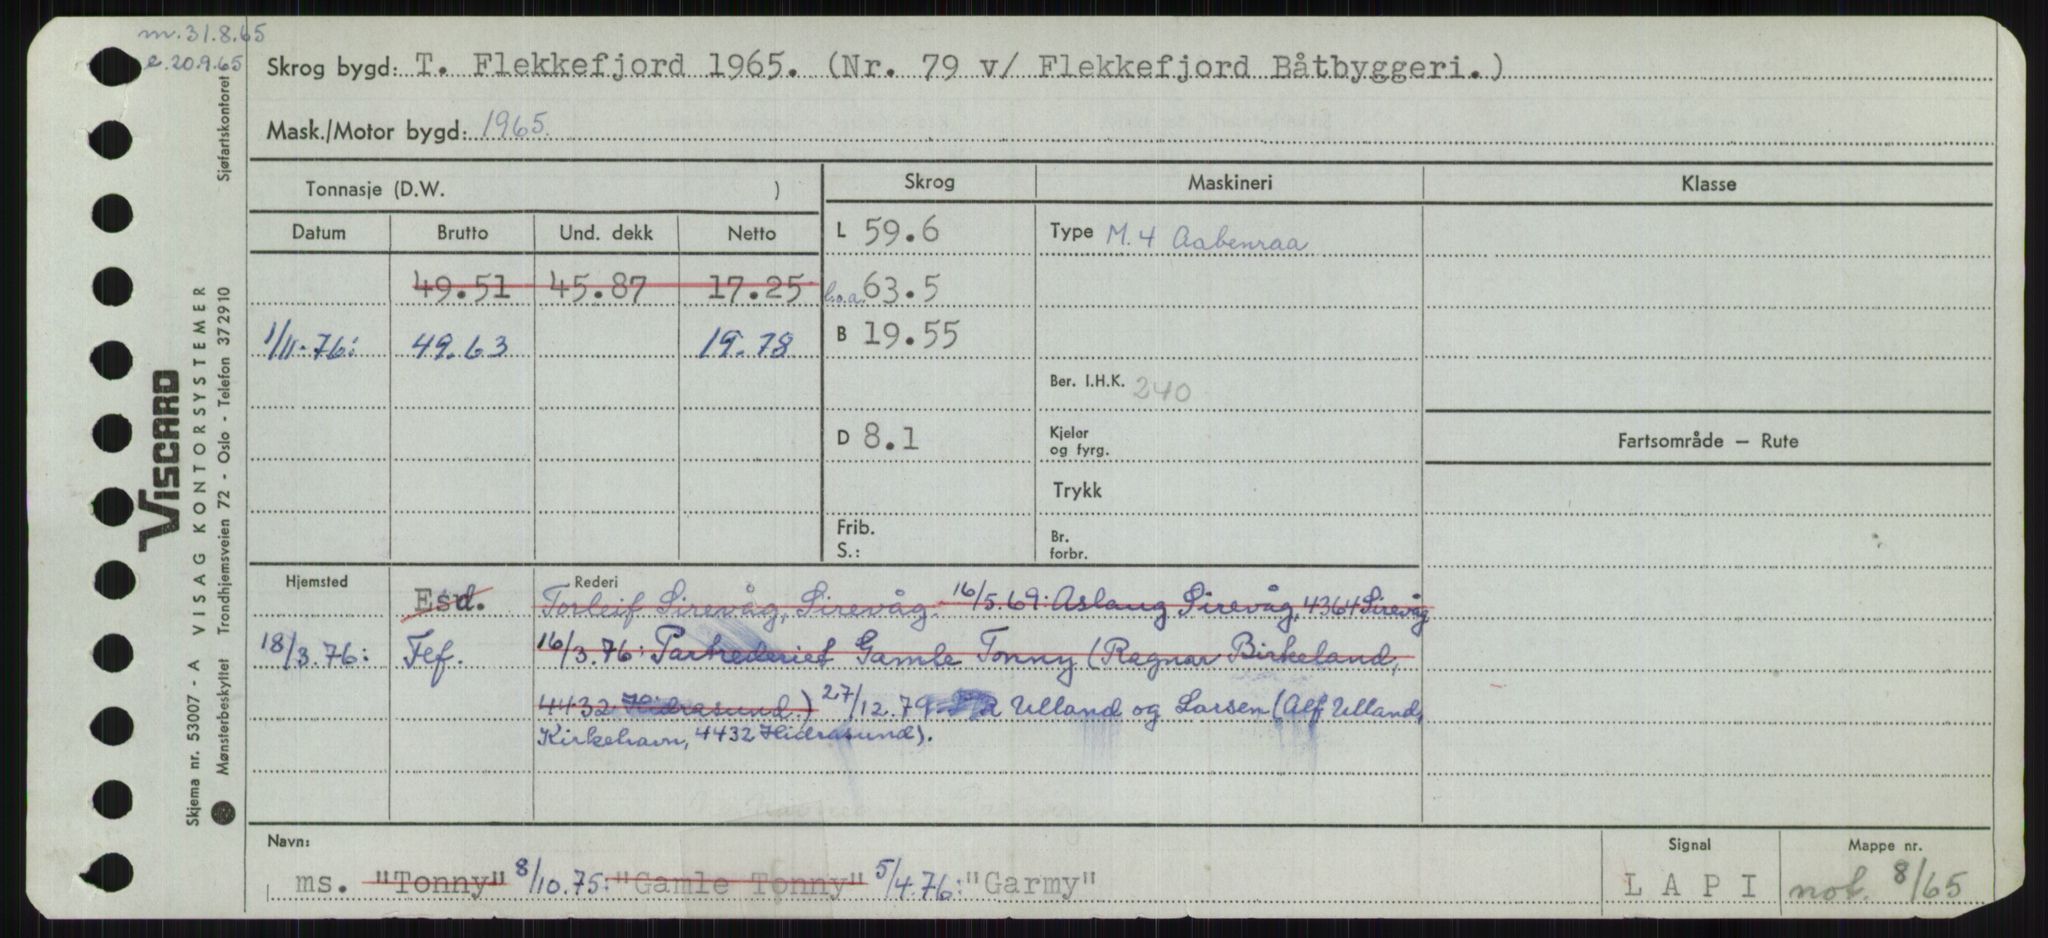 m. 31.8.65
e. 20.9.65
Sjøfartskontoret
Skrog bygd: T. Flekkefjord 1965. (Nr. 79 v/ Flekkefjord Båtbyggeri.)
Mask./Motor bygd: 1965.
Tonnasje (D.W. )
Skrog Maskineri Klasse
Datum Brutto Und. dekk Netto
L 59.6 Type M. 4 Aabenraa
49.51 45.87 17.25 l.o.a. 63.5
1/11-76: 49.63 19.78 B 19.55
Ber. I.H.K. 240
D 8.1 Kjeler og fyrg.
Fartsområde – Rute
Trykk
Frib. S.: Br. forbr.
Hjemsted Rederi
Esd. Torleif Sirevåg, Sirevåg. 16/5.69: Aslaug Sirevåg, 4364 Sirevåg
18/3.76: Fef. 16/3.76: Partrederiet Gamle Tonny (Ragnar Birkeland,
4432 Hidrasund.) 27/12.79 Ulland og Larsen (Alf Ulland,
Kirkehavn, 4432 Hidrasund).
Navn: Signal Mappe nr.
ms. "Tonny" 8/10.75: "Gamle Tonny" 5/4.76: "Garmy" L A P I not. 8/65
VISCARD
Skjema nr. 53007 - A VISAG KONTORSYSTEMER
Mønsterbeskyttet Trondhjemsveien 72 - Oslo - Telefon 37 29 10